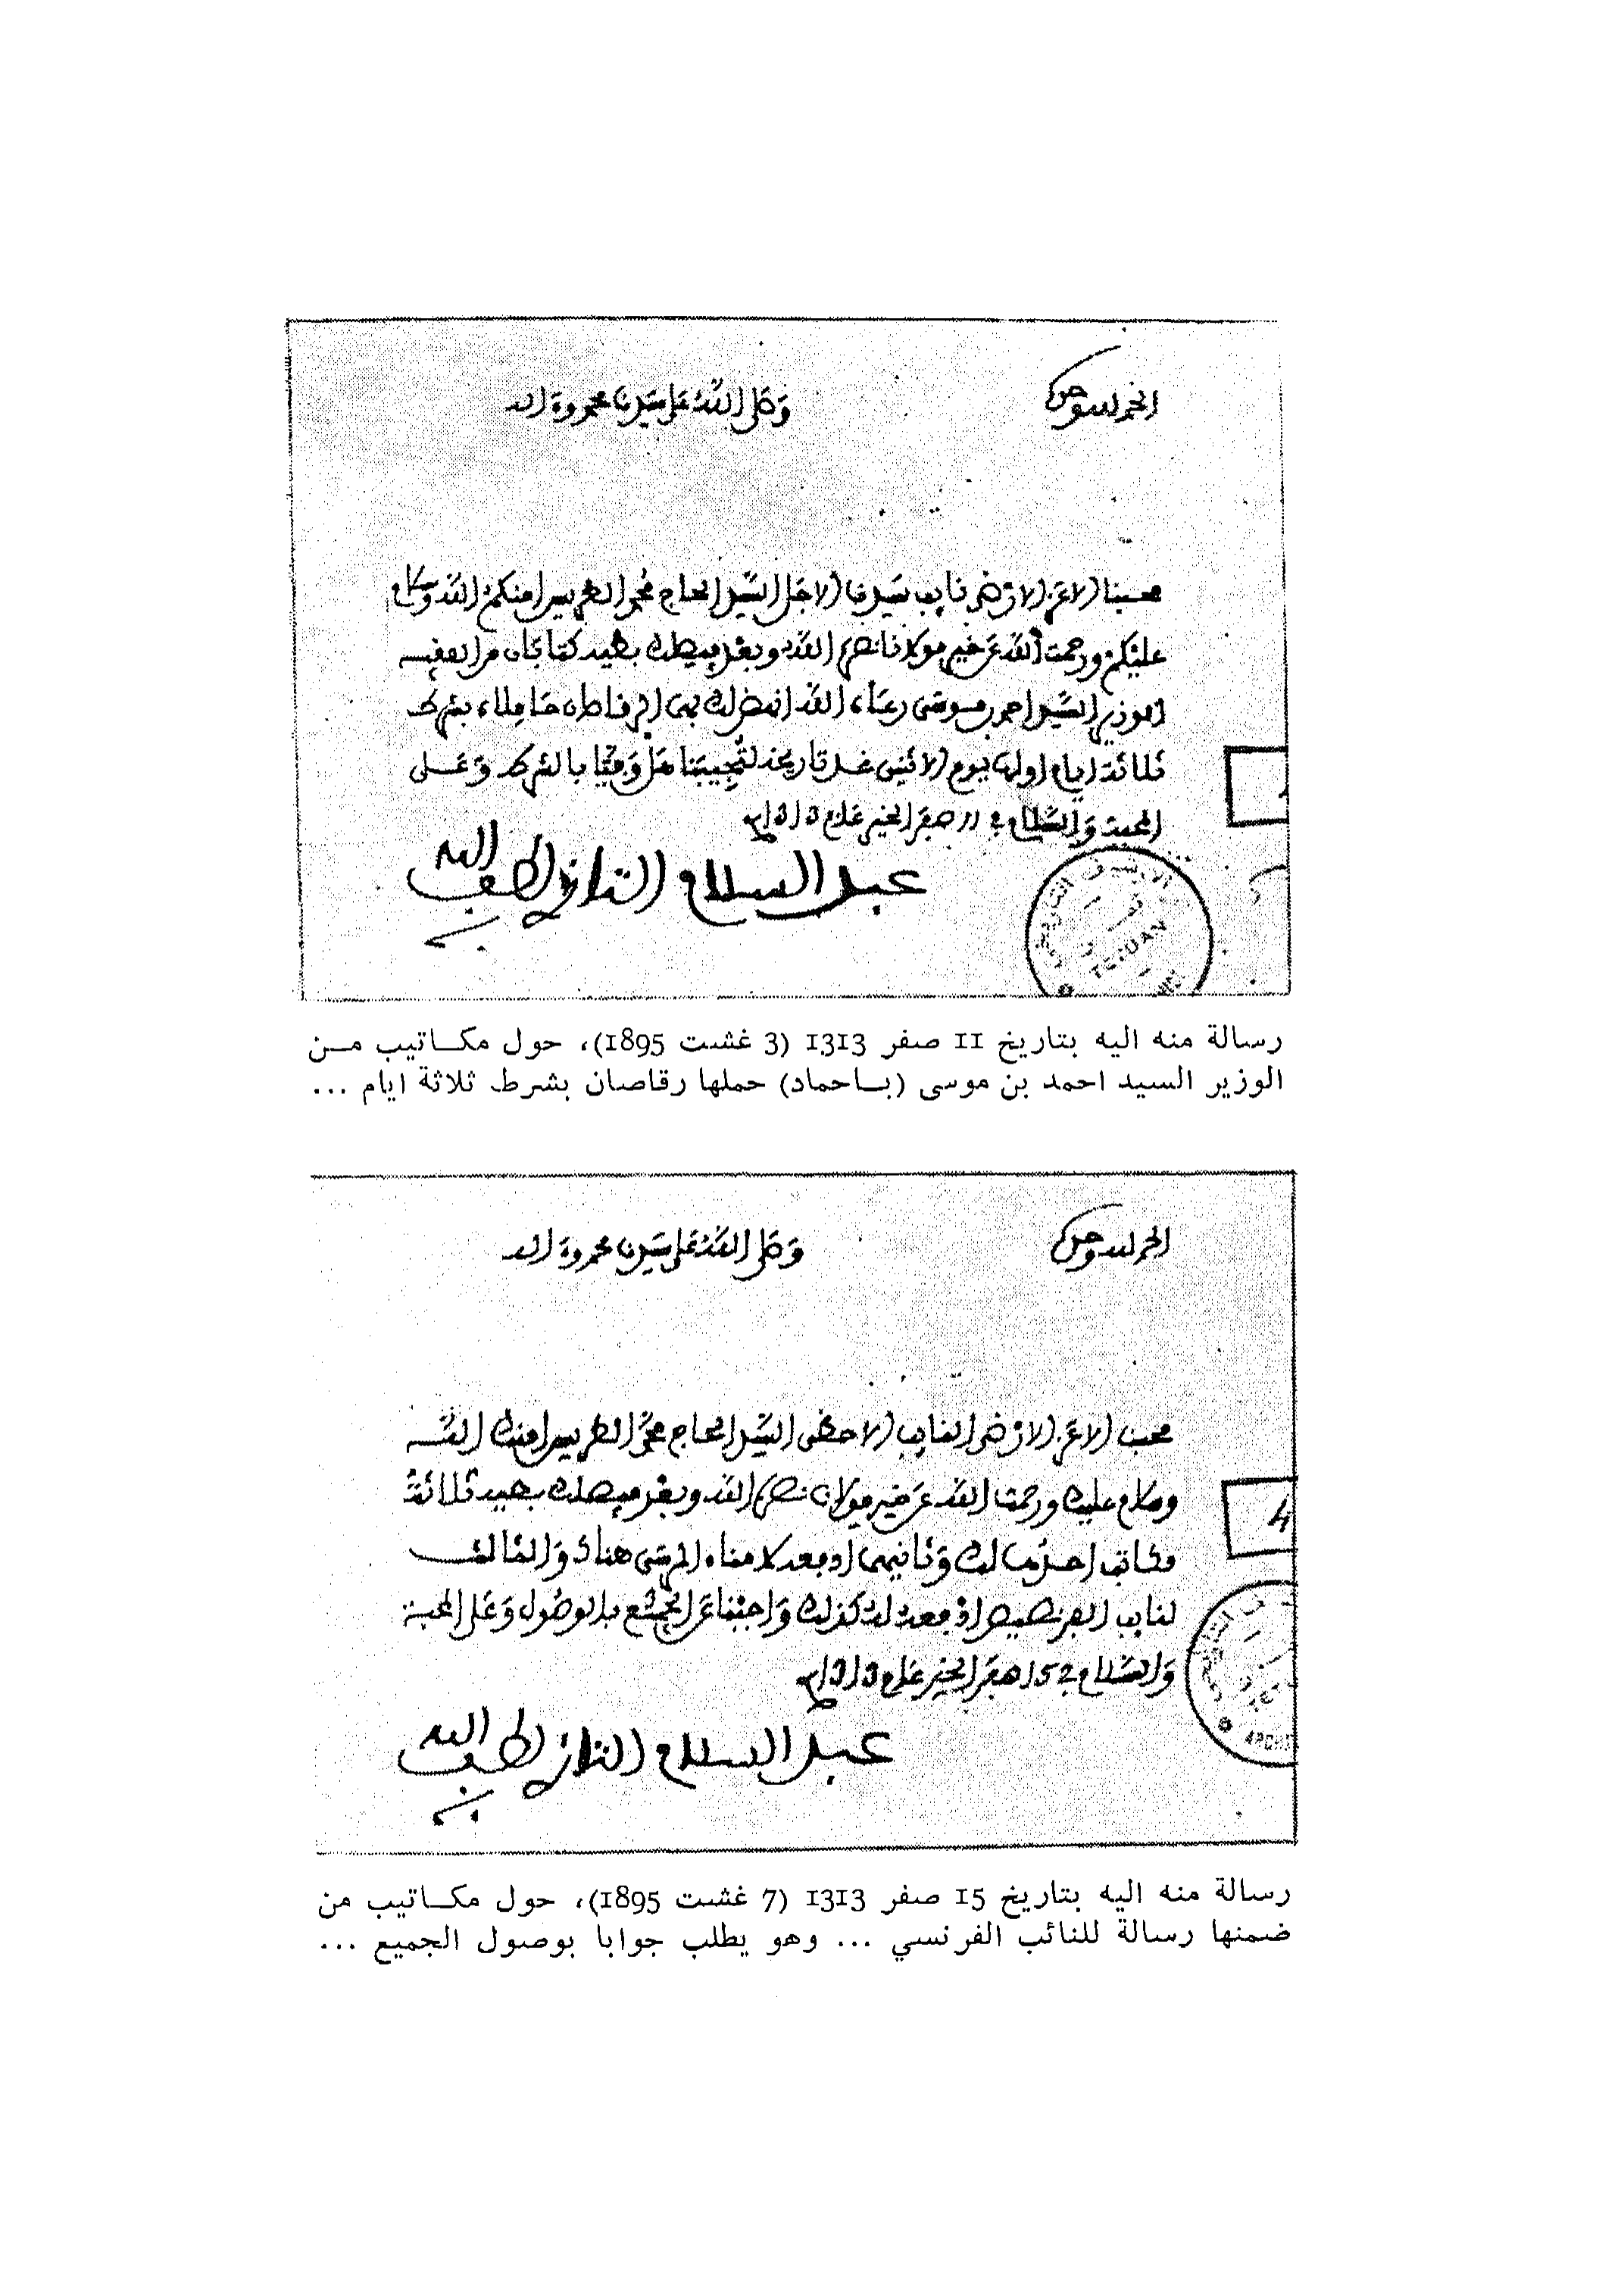 الحمد لله وحده
وصلى الله على سيدنا محمد وءاله
محبنا الاعز الارضى نايب سيدنا الاجل السيد الحاج محمد الطريس امنكم الله وسلام
عليكم ورحمت الله عن خير مولانا نصره الله وبعد فيصلك طيه كتابان من الفقيه
الوزير السيد احمد بن موسى رعاه الله انهض لك بهما الرقاصان حاملاه بشرط
ثلاثة ايام اولها يوم الاثنين غد تاريخه لتجيبنا هل وفيا بالشرط وعلى
المحبة والسلام في 11 صفر الخير عام 1313
عبد السلام التازي لطف الله به
TETUAN
رسالة منه اليه بتاريخ 11 صفر 1313 (3 غشت 1895)، حول مكاتيب من
الوزير السيد احمد بن موسى (باحماد) حملها رقاصان بشرط ثلاثة ايام ...
الحمد لله وحده
وصلى الله على سيدنا محمد وءاله
محبنا الاعز الارضى النايب الاحظى السيد الحاج محمد الطريس امنك الله
وسلام عليك ورحمت الله عن خير مولانا نصره الله وبعد فيصلك طيه ثلاثة
مكاتب احدها لك وثانيها ادفعه لامناء المرسى هناك والثالث
لنايب الفرنصيص ادفعه له كذلك واجبنا عن الجميع بالوصول وعلى المحبة
والسلام في 15 صفر الخير عام 1313
عبد السلام التازي لطف الله به
4
رسالة منه اليه بتاريخ 15 صفر 1313 (7 غشت 1895)، حول مكاتيب من
ضمنها رسالة للنائب الفرنسي ... وهو يطلب جوابا بوصول الجميع ...